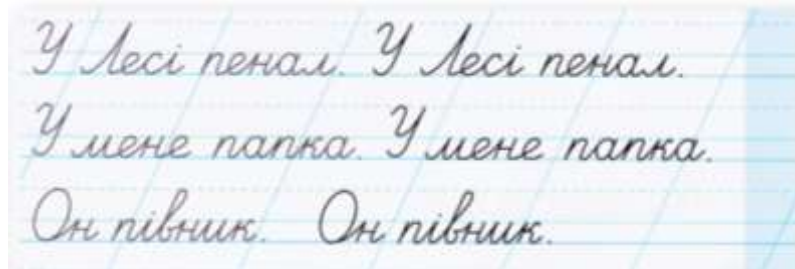 У Лесі пенал. У Лесі пенал.
У мене папка. У мене папка.
Он півник. Он півник.